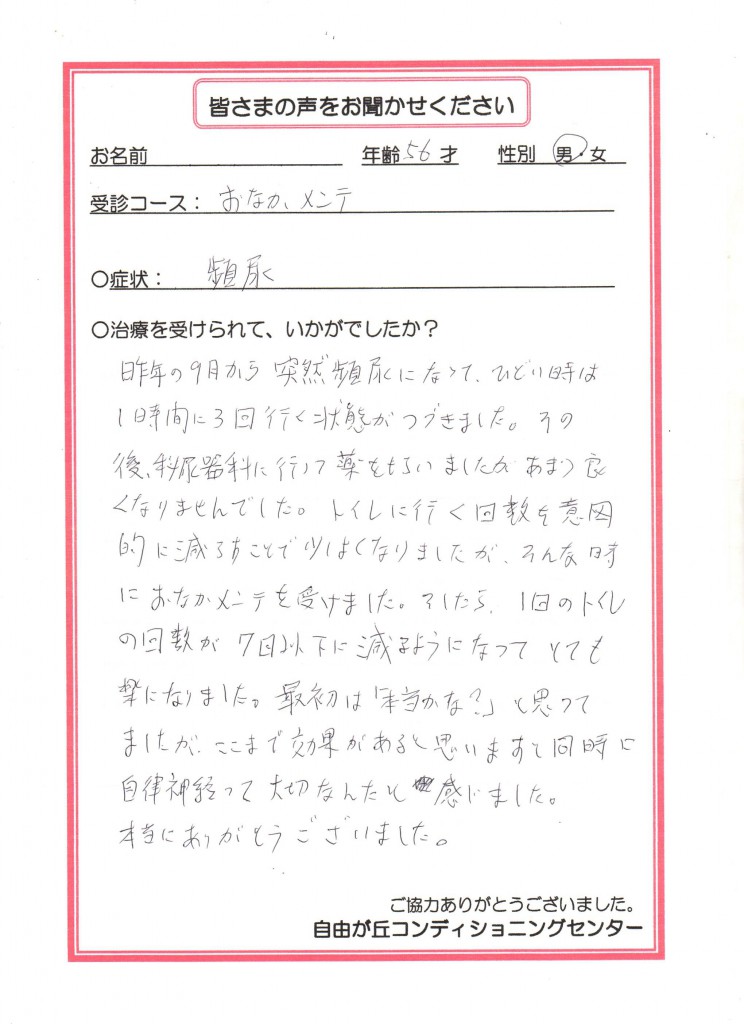 皆さまの声をお聞かせください
お名前 年齢 56 才 性別 男・女
受診コース： おなかメンテ
○症状： 頻尿
○治療を受けられて、いかがでしたか？
昨年の9月から突然頻尿になって、ひどい時は
1時間に3回行く状態がつづきました。その
後、科尿器科に行って薬をもらいましたがあまり良
くなりませんでした。トイレに行く回数を意図
的に減らすことで少しはよくなりましたが、そんな時
におなかメンテを受けました。そしたら、1日のトイレ
の回数が7回以下に減るようになってとても
楽になりました。最初は「本当かな？」と思って
ましたが、ここまで効果があると思いますと同時に
自律神経って大切なんだと感じました。
本当にありがとうございました。
ご協力ありがとうございました。
自由が丘コンディショニングセンター